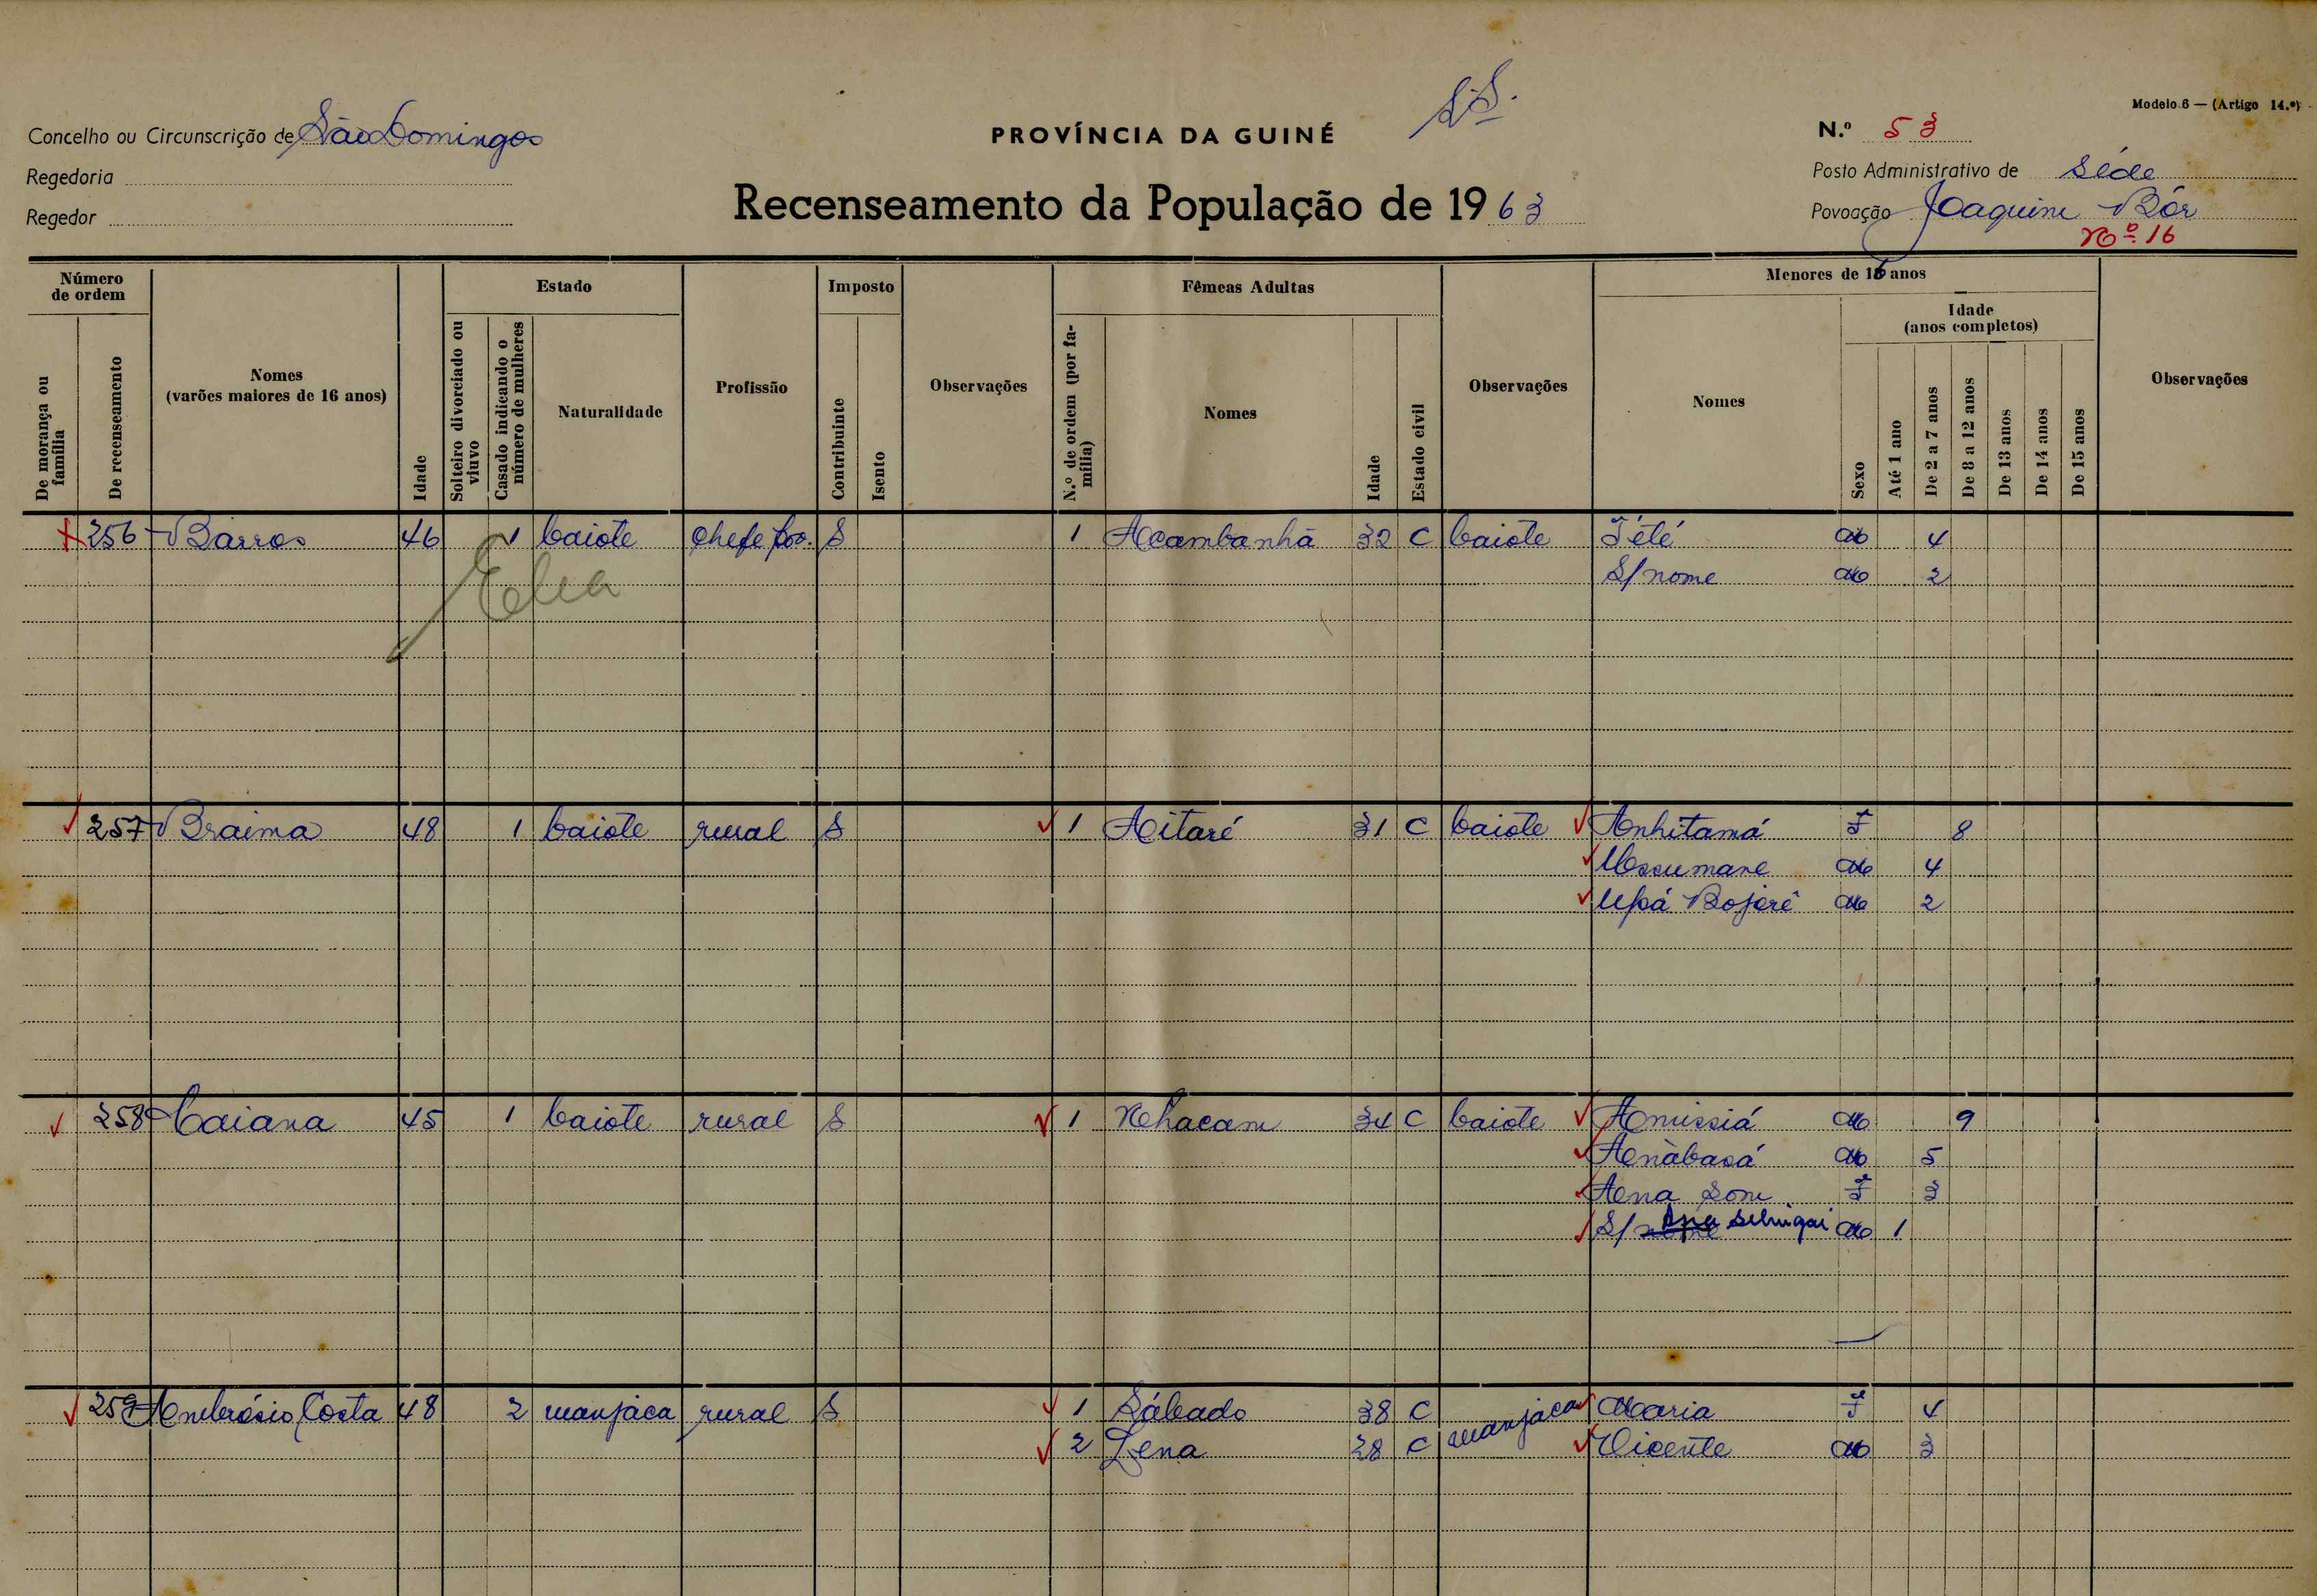 S.S.
Modelo 6 — (Artigo 14.º)
Concelho ou Circunscrição de São Domingos
PROVÍNCIA DA GUINÉ
N.º 53
Regedoria
Posto Administrativo de Séde
Regedor
Recenseamento da População de 1963
Povoação Joaquim Bór
Nº 16
Número de ordem
De morança ou família
De recenseamento
Nomes
(varões maiores de 16 anos)
Idade
Estado
Solteiro divorciado ou viuvo
Casado indicando o número de mulheres
Naturalidade
Profissão
Imposto
Contribuinte
Isento
Observações
Fêmeas Adultas
N.º de ordem (por família)
Nomes
Idade
Estado civil
Observações
Menores de 16 anos
Nomes
Sexo
Idade
(anos completos)
Até 1 ano
De 2 a 7 anos
De 8 a 12 anos
De 13 anos
De 14 anos
De 15 anos
Observações
256 Barros 46 1 baiote chefe pov. S 1 Acambanhã 32 C baiote Tété M 4
S/nome M 2
Elia
257 Braima 48 1 baiote rural S 1 Aitaré 31 C baiote Anhitamá F 8
Ussumane M 4
Upá Bojerê M 2
258 Caiana 45 1 baiote rural S 1 Nhacam 34 C baiote Amissiá M 9
Anàbasá M 5
Ana Som F 3
S/nome Ana M 1
259 Ambrósio Costa 48 2 manjaca rural S 1 Sábado 38 C manjaca Maria F 4
2 Lena 28 C Vicente M 3